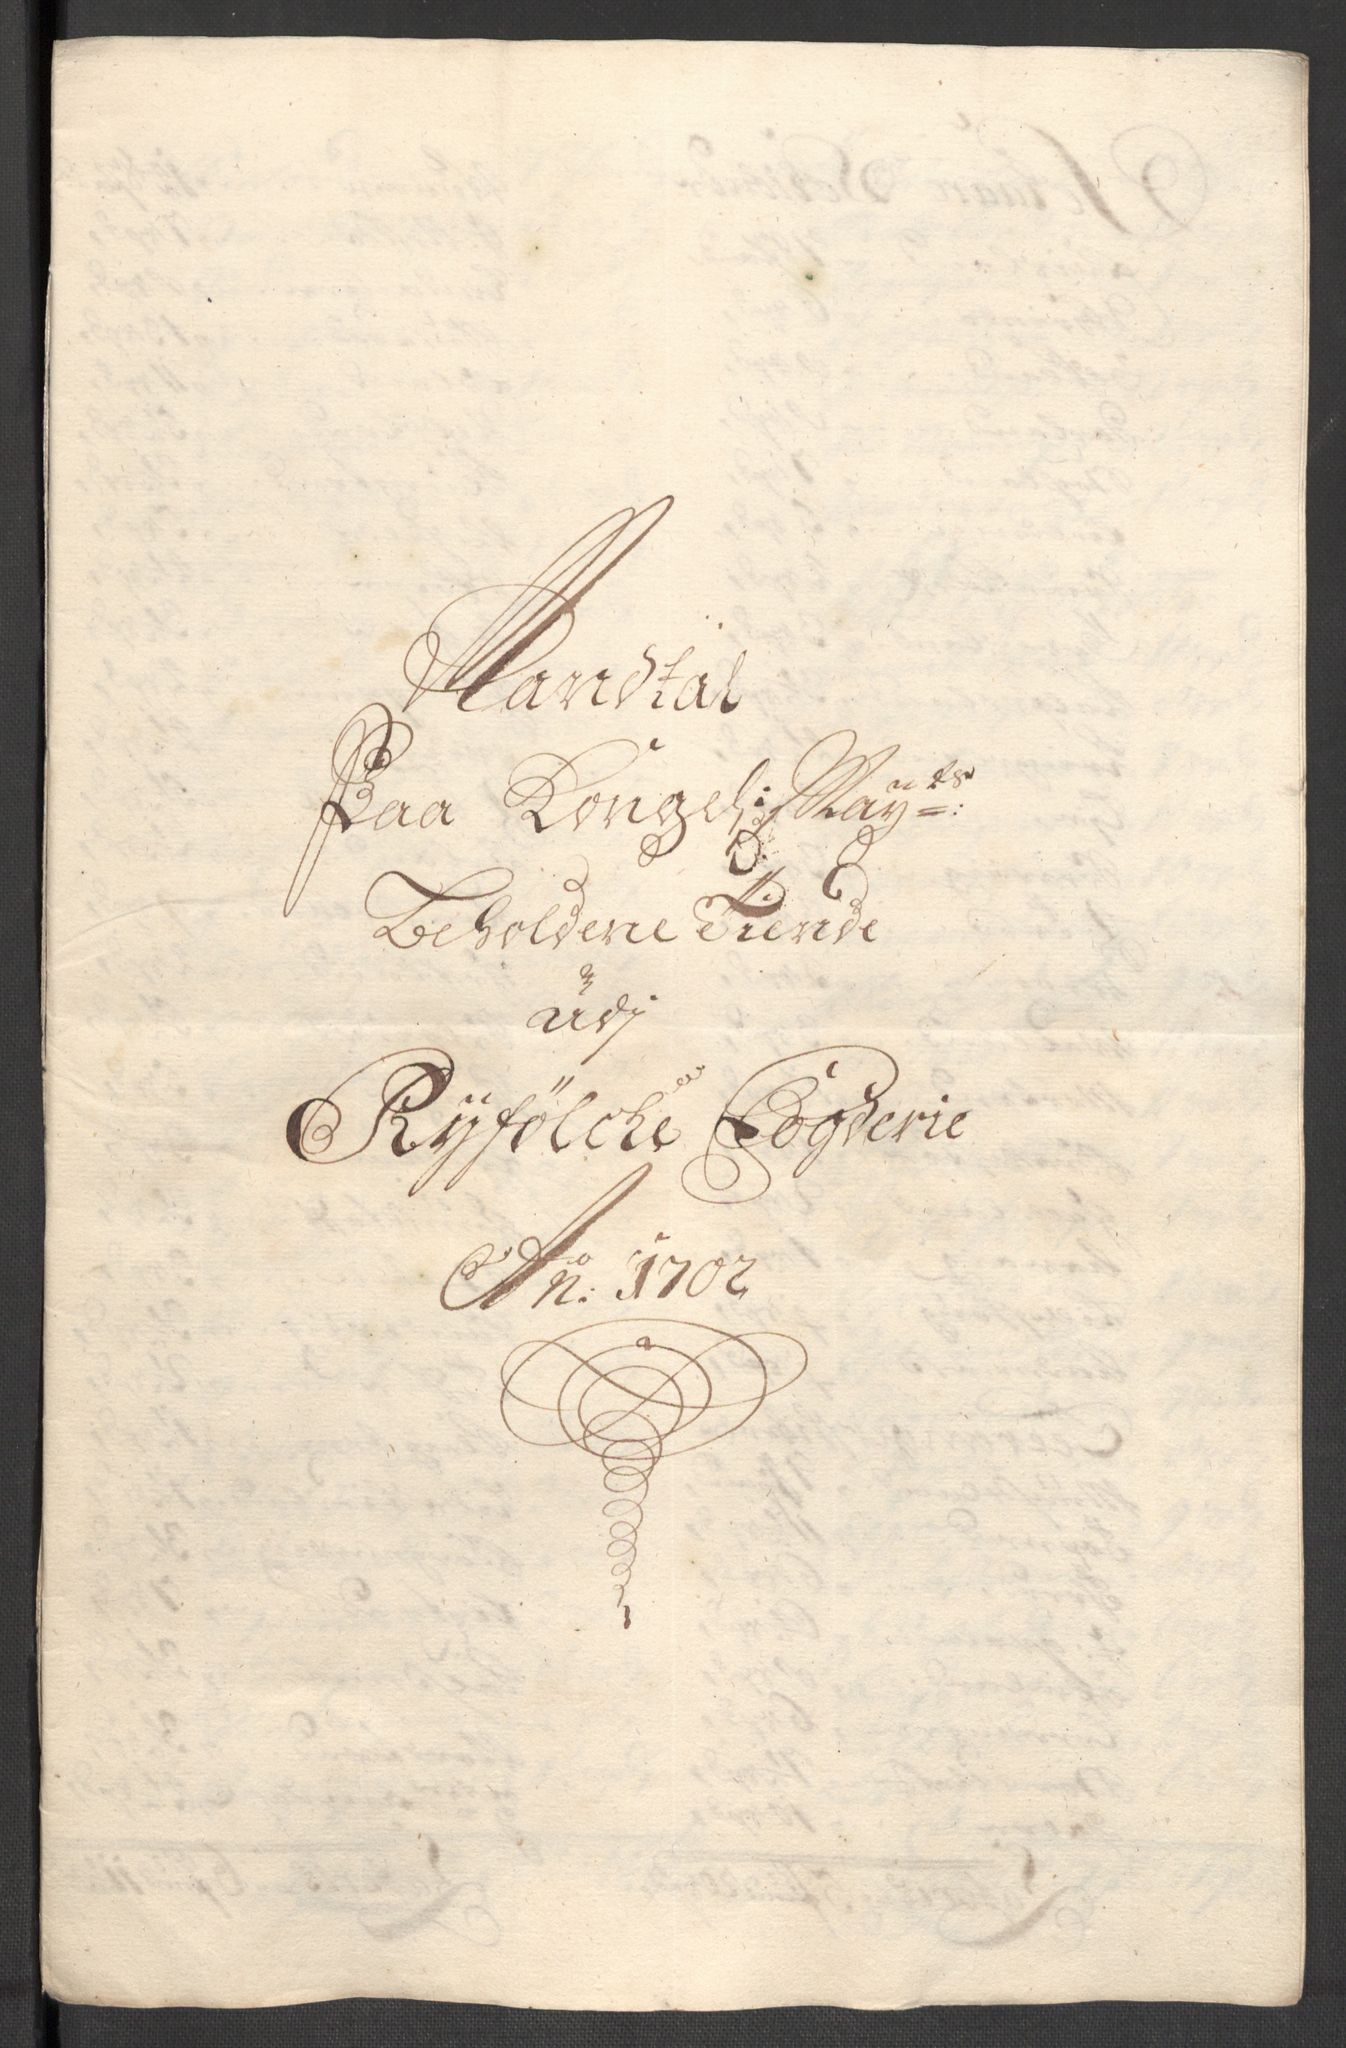 Mandtal
Paa Kongel: Mayts:
Beholdene Tiende
udj
Ryfølche Fogderie
An̄o: 1702